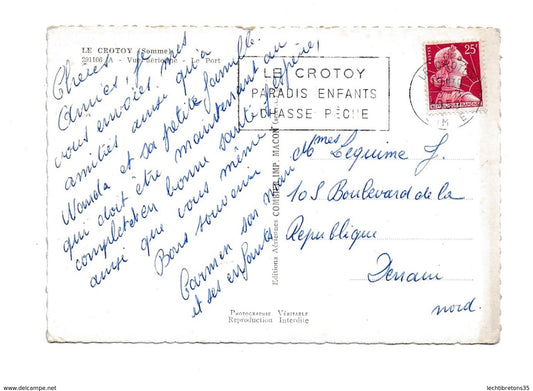 LE CROTOY (Somme)
291106 A - Vue aérienne - Le Port
Chères
Amies, je
vous envoies mes
amitiés ainsi qu'à
Wanda et sa petite famille.
qui doit être maintenant au
complet et en bonne santé j'espère,
ainsi que vous même
Bons souvenirs
Carmen son mari
et ses enfants
LE CROTOY
PARADIS ENFANTS
CHASSE PÊCHE
25F
Editions Aériennes COMBIER IMP. MACON
Mmes Lequime J.
105 Boulevard de la
République
Denain
nord.
PHOTOGRAPHIE VÉRITABLE
Reproduction Interdite
www.delcampe.net
lechtibretons35